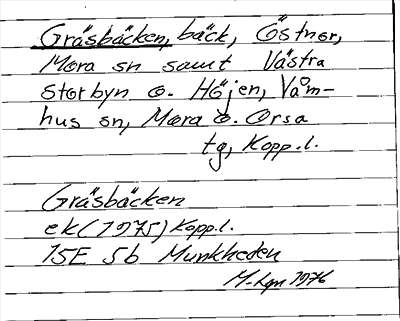 Gräsbäcken, bäck, Östnor,
Mora sn samt Västra
Storbyn o. Höjen, Våm-
hus sn, Mora o. Orsa
tg, Kopp.l.
Gräsbäcken
ek (1975) Kopp.l.
15E 5b Munkheden
M-lgn 1976